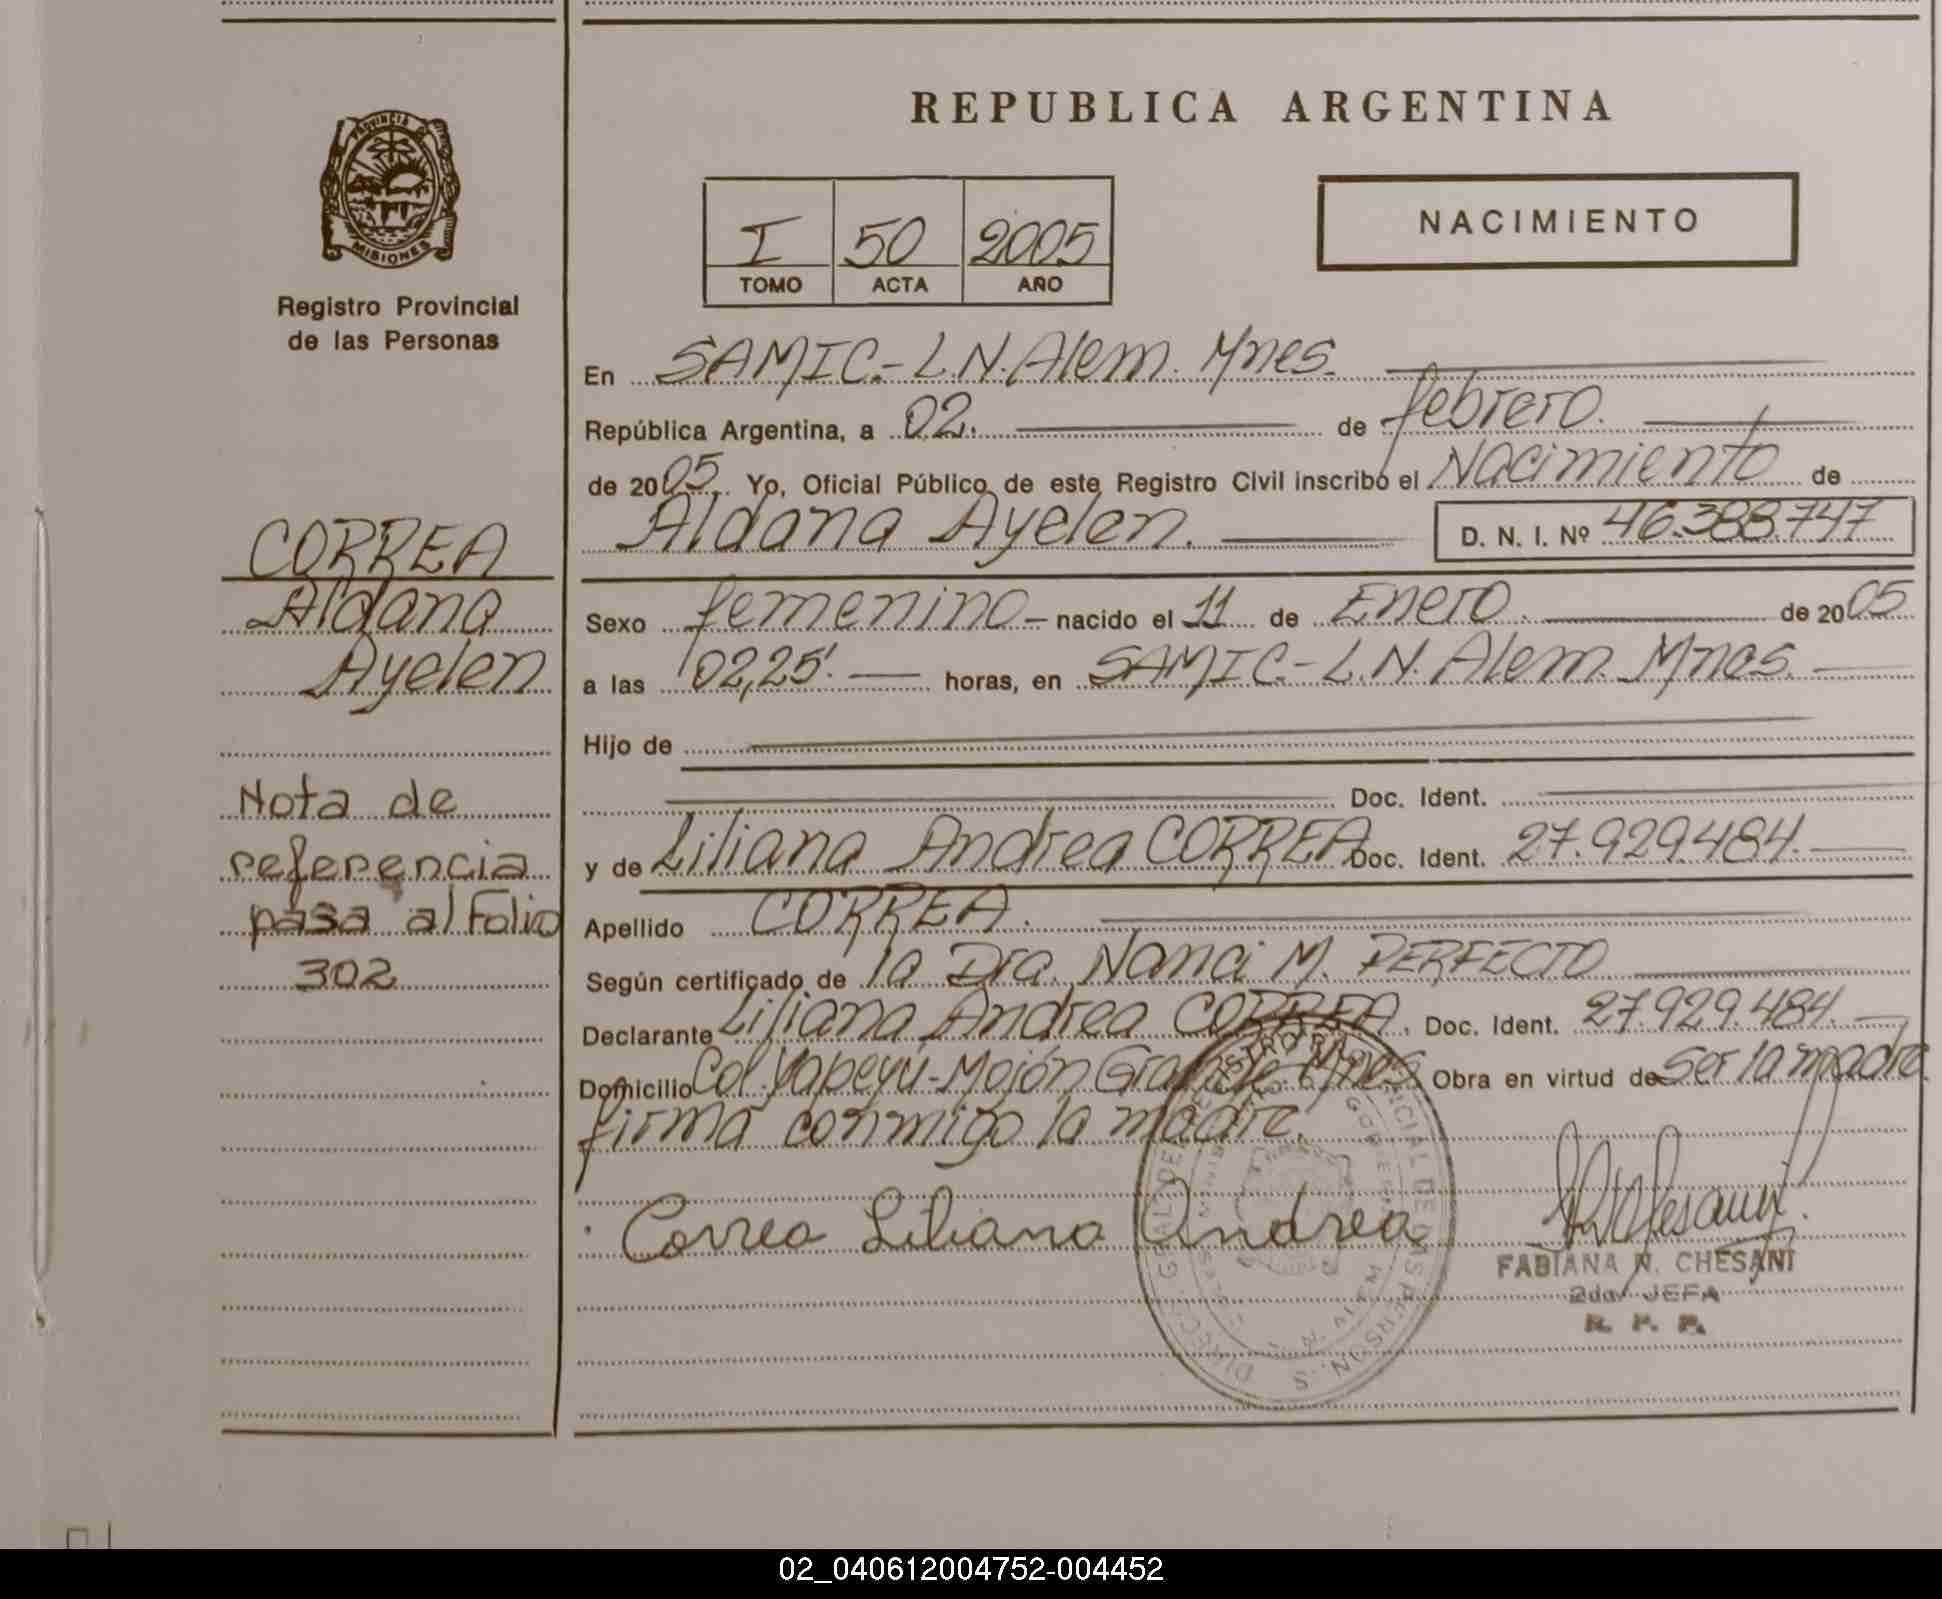 REPUBLICA ARGENTINA
PROVINCIA DE
MISIONES
Registro Provincial
de las Personas
I 50 2005
TOMO ACTA AÑO
NACIMIENTO
En SAMIC.-L.N.Alem. Mnes.
República Argentina, a 02. de febrero.
de 2005. Yo, Oficial Público de este Registro Civil inscribo el Nacimiento de
Aldana Ayelen. D. N. I. Nº 46.388.747
CORREA
Aldana
Ayelen
Sexo femenino - nacido el 11 de Enero. de 2005
a las 02,25'. horas, en SAMIC.-L.N. Alem. Mnes.
Hijo de
Doc. Ident.
y de Liliana Andrea CORREA Doc. Ident. 27.929.484.
Apellido CORREA.
Según certificado de la Dra. Nanci M. PERFECTO
Declarante Liliana Andrea CORREA. Doc. Ident. 27.929.484.
Domicilio Col. Yapeyú-Mojón Grande Mnes Obra en virtud de ser la madre.
firma conmigo la madre.
Nota de
referencia
pasa al Folio
302
Correa Liliana Andrea
FABIANA N. CHESANI
2da JEFA
R. P. P.
02_040612004752-004452